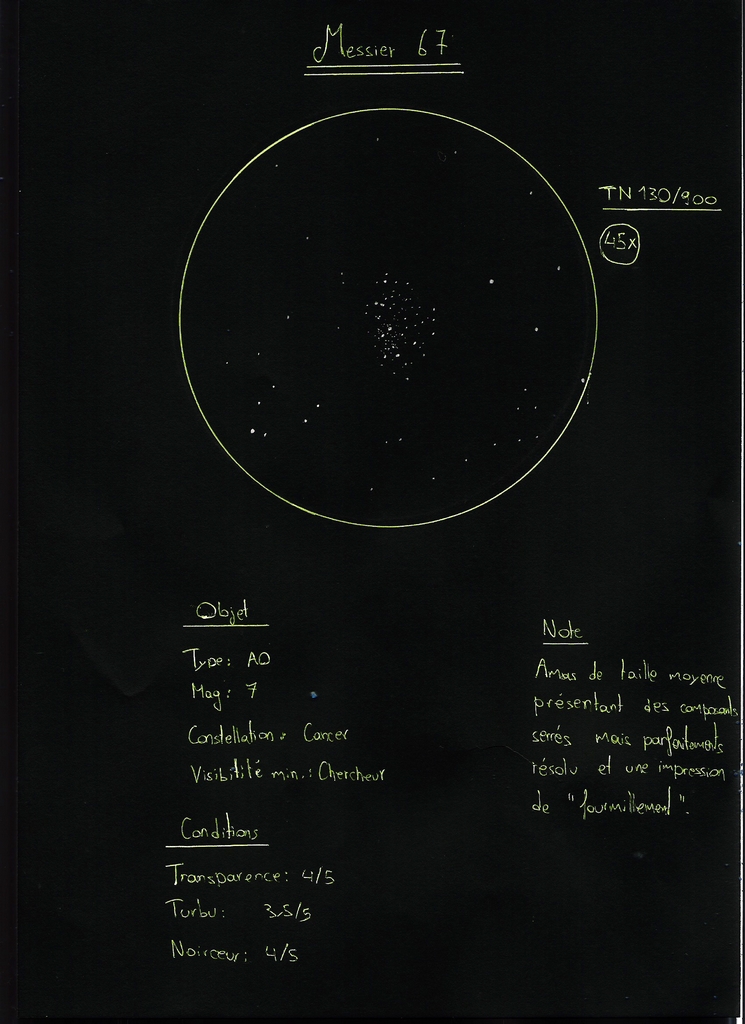 Messier 67
TN 130/900
45x
Objet
Type: AO
Mag: 7
Constellation: Cancer
Visibitité min.: Chercheur
Conditions
Transparence: 4/5
Turbu: 3.5/5
Noirceur: 4/5
Note
Amas de taille moyenne
présentant des composants
serrés mais parfaitements
résolu et une impression
de "fourmillement".